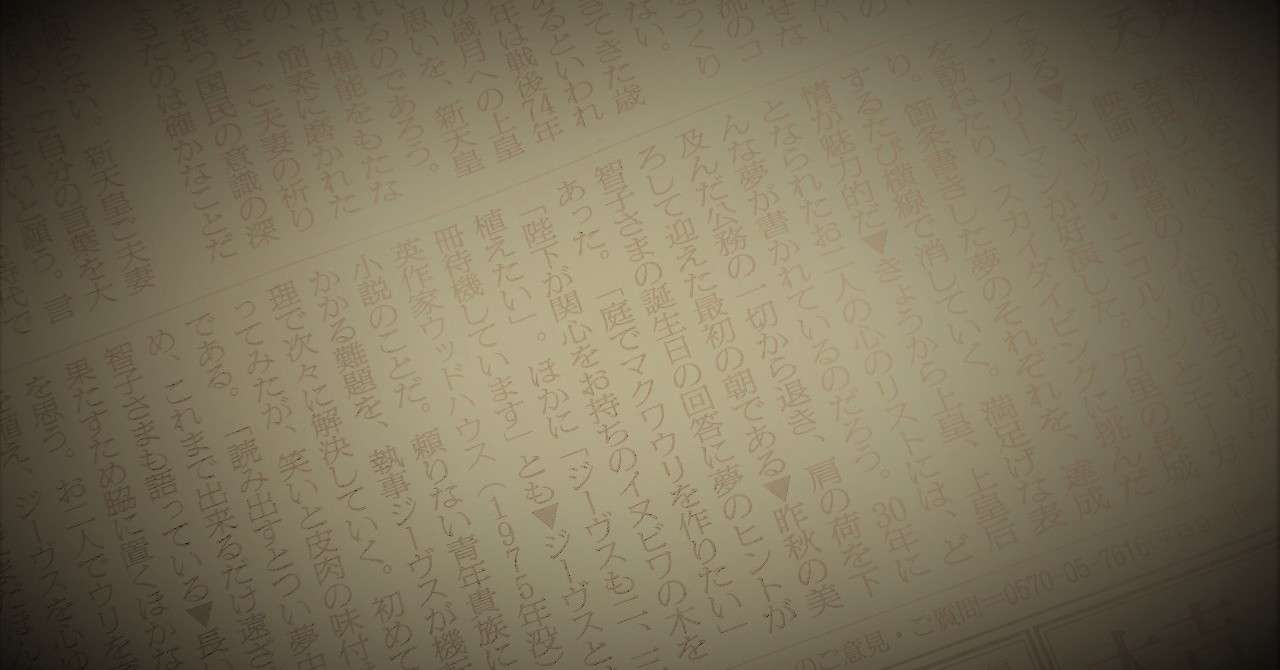 きてきた歳
あるといわれ
年は戦後74年
の歳月への上皇
い思いを、新天皇
れるのであろう。
的な権能をもたな
葉と、ご夫妻の祈り
を持つ国民の意識の深
きたのは確かなことだ
ならない。新天皇ご夫妻
し、ご自分の言葉を大
たいと願う。言
である▼ジャック・ニコルソンとモーガ
ン・フリーマンが好演した。万里の長城
を訪ねたり、スカイダイビングに挑んだ
り。箇条書きした夢のそれぞれを、達成
するたび横線で消していく。満足げな表
情が魅力的だ▼きょうから上皇、上皇后
となられたお二人の心のリストには、ど
んな夢が書かれているのだろう。30年に
及んだ公務の一切から退き、肩の荷を下
ろして迎えた最初の朝である▼昨秋の美
智子さまの誕生日の回答に夢のヒントが
あった。「庭でマクワウリを作りたい」
「陛下が関心をお持ちのイヌビワの木を
植えたい」。ほかに「ジーヴスも二、三
冊待機しています」とも▼ジーヴスと
英作家ウッドハウス(1975年没)
小説のことだ。頼りない青年貴族に
かかる難題を、執事ジーヴスが機
理で次々に解決していく。初めて
ってみたが、笑いと皮肉の味付
である。「読み出すとつい夢中
め、これまで出来るだけ遠さ
智子さまも語っている▼長
果たすため脇に置くほかな
を思う。お二人でウリを
ジーヴスを
のご意見・ご質問―0570-05-7616